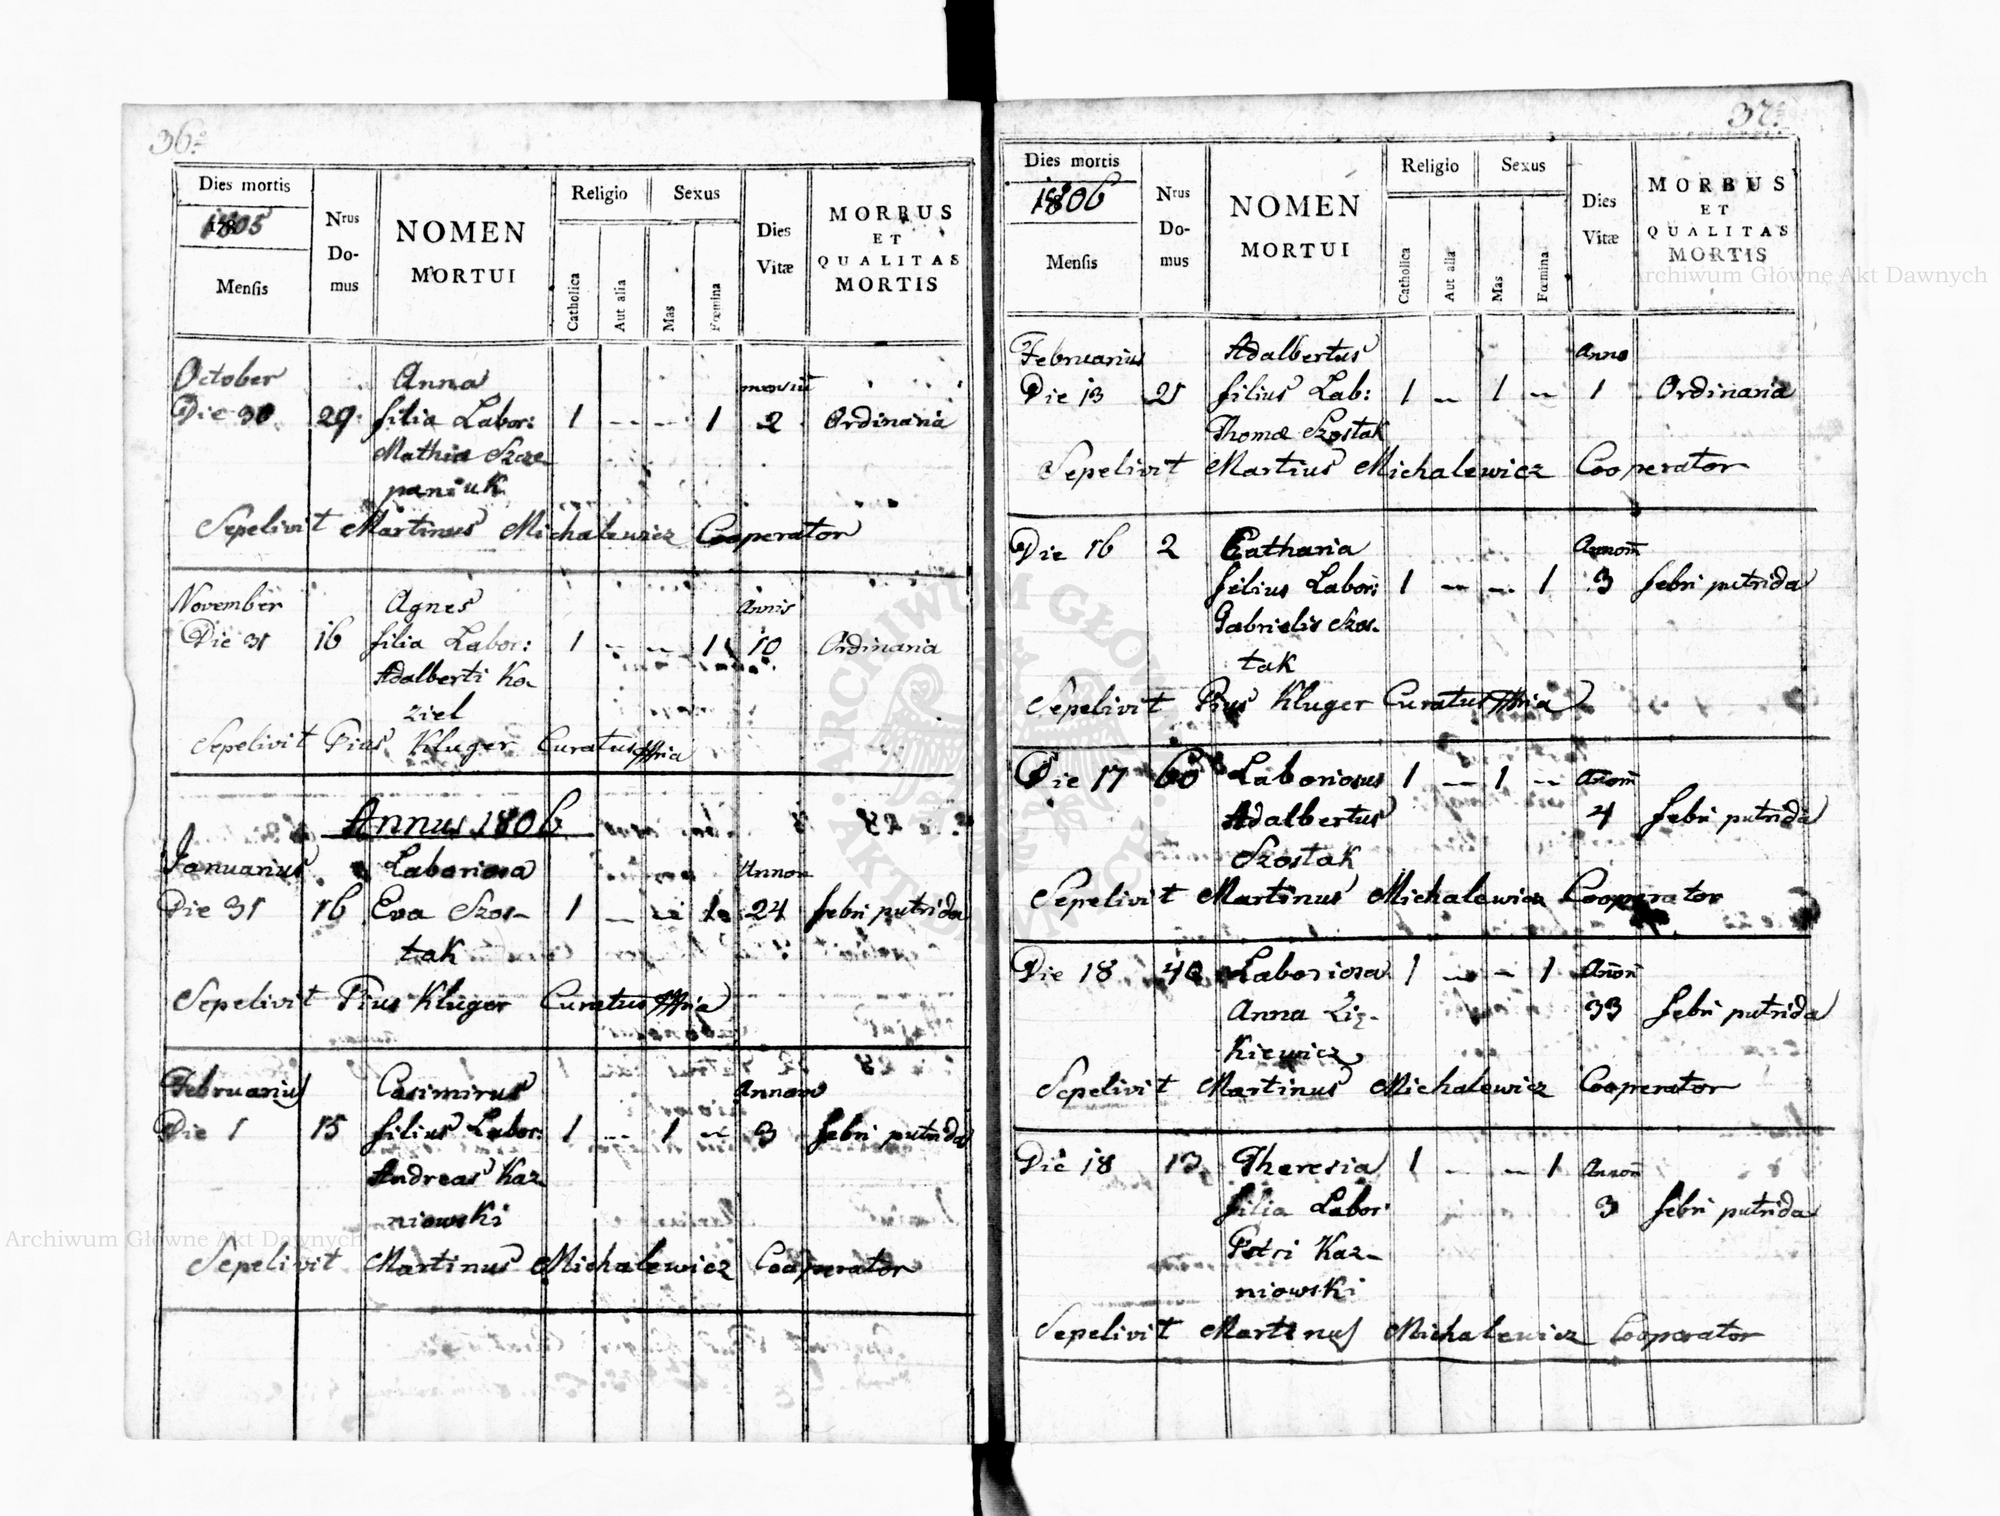 36.
Dies mortis
1805
Mensis
Nrus Domus
NOMEN
MORTUI
Religio
Catholica
Aut alia
Sexus
Mas
Fœmina
Dies
Vitæ
MORBUS
ET
QUALITAS
MORTIS
October Anna
Die 30 29 filia Labor: 1 -- -- 1 2 Ordinaria
Mathiæ Szcze
paniuk
Sepelivit Martinus Michalewicz Cooperator
November Agnes Annis
Die 31 16 filia Labor: 1 -- -- 1 10 Ordinaria
Adalberti Ko-
ziel
Sepelivit Pius Kluger Curatus
Annus 1806
Januarius Laboriosa Annor
Die 31 16 Eva Szos- 1 -- -- 1 24 febri putrida
tak
Sepelivit Pius Kluger Curatus
Februarius Casimirus Annor
Die 1 15 filius Labor: 1 -- 1 -- 3 febri putrida
Andreas Kaz-
niowski
Sepelivit Martinus Michalewicz Cooperator
37.
Dies mortis
1806
Mensis
Nrus Domus
NOMEN
MORTUI
Religio
Catholica
Aut alia
Sexus
Mas
Fœmina
Dies
Vitæ
MORBUS
ET
QUALITAS
MORTIS
Februarius Adalbertus Anno
Die 13 21 filius Lab: 1 -- 1 -- 1 Ordinaria
Thomæ Szostak
Sepelivit Martius Michalewicz Cooperator
Die 16 2 Catharia Annom
filius Labor: 1 -- -- 1 3 febri putrida
Gabrielis Szos-
tak
Sepelivit Pius Kluger Curatus
Die 17 60 Laboriosus 1 -- 1 -- Anom
Adalbertus 4 febri putrida
Szostak
Sepelivit Martinus Michalewicz Cooperator
Die 18 40 Laboriosa 1 -- -- 1 Anom
Anna Zię- 33 febri putrida
kiewicz
Sepelivit Martinus Michalewicz Cooperator
Die 18 13 Theresia 1 -- -- 1 Annom
filia Labor: 3 febri putrida
Petri Kaz-
niowski
Sepelivit Martinus Michalewicz Cooperator
Archiwum Główne Akt Dawnych
Archiwum Główne Akt Dawnych
ARCHIWUM GŁÓWNE AKT DAWNYCH